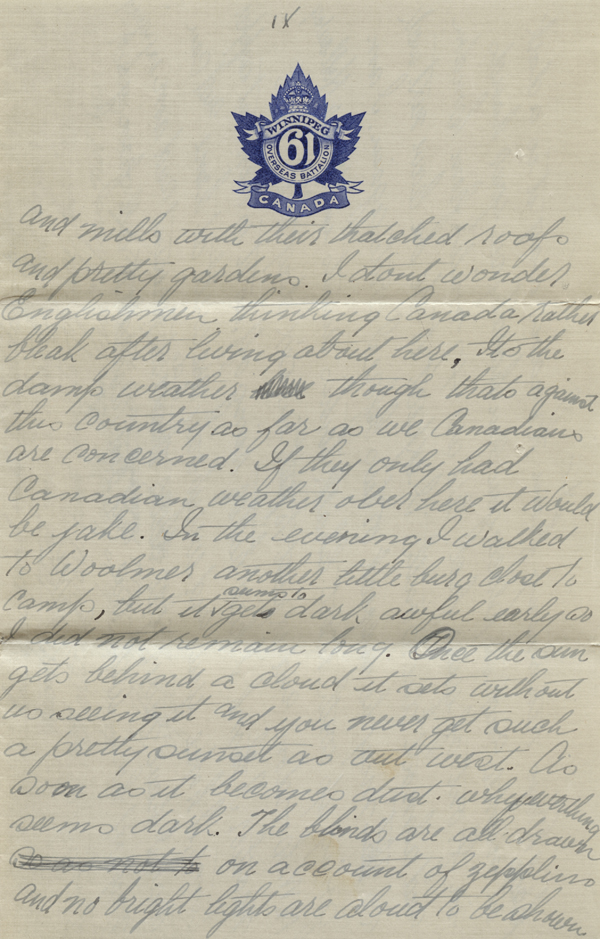 IX
WINNIPEG
61
OVERSEAS BATTALION
CANADA
and mills with their thatched roofs
and pretty gardens. I dont wonder
Englishmen thinking Canada rather
bleak after living about here, Its the
damp weather though thats against
this country as far as we Canadians
are concerned. If they only had
Canadian weather over here it would
be jake. In the evening I walked
to Woolmer another little burg close to
camp, but it seems to gets dark awful early so
I did not remain long. Once the sun
gets behind a cloud it sets without
us seeing it and you never get such
a pretty sunset as out west. As
soon as it becomes dust. why everything
seems dark. The blinds are all drawn
so as not to on account of zepplins
and no bright lights are aloud to be shown